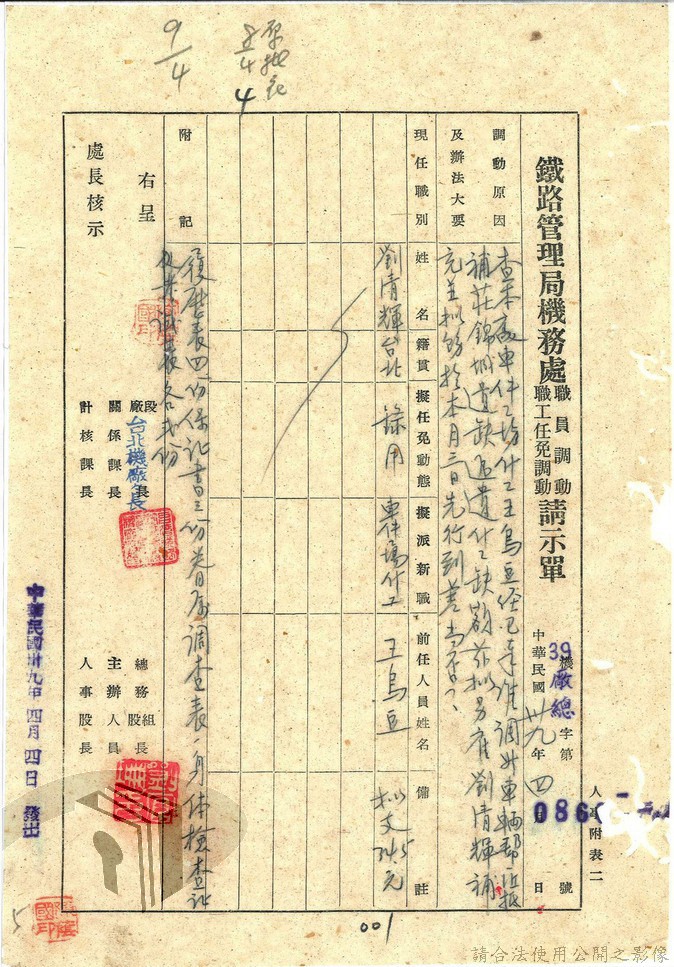 原批在
9/4
鐵路管理局機務處職員調動職工任免調動請示單
人事附表二
39機廠總字第086號
中華民國卅九年四月日
調動原因及辦法大要
查本廠車件工場什工王烏豆經已奉准調升車輛
補莊錦城遺缺所遺什工缺額茲擬另雇劉清輝補
充並擬飭於本月三日先行到差當否？
現任職別
姓名
籍貫
擬任免動態
擬派新職
前任人員姓名
備註
劉清輝
台北
錄用
車件場什工
王烏豆
擬支745元
附記
履歷表四份保証書三份眷屬調查表身体檢查証
各弍份
右呈
處長核示
段廠長
台北機廠長
關係課長
計核課長
總務組股長
主辦人員
人事股長
中華民國卅九年四月四日發出
001
5
請合法使用公開之影像